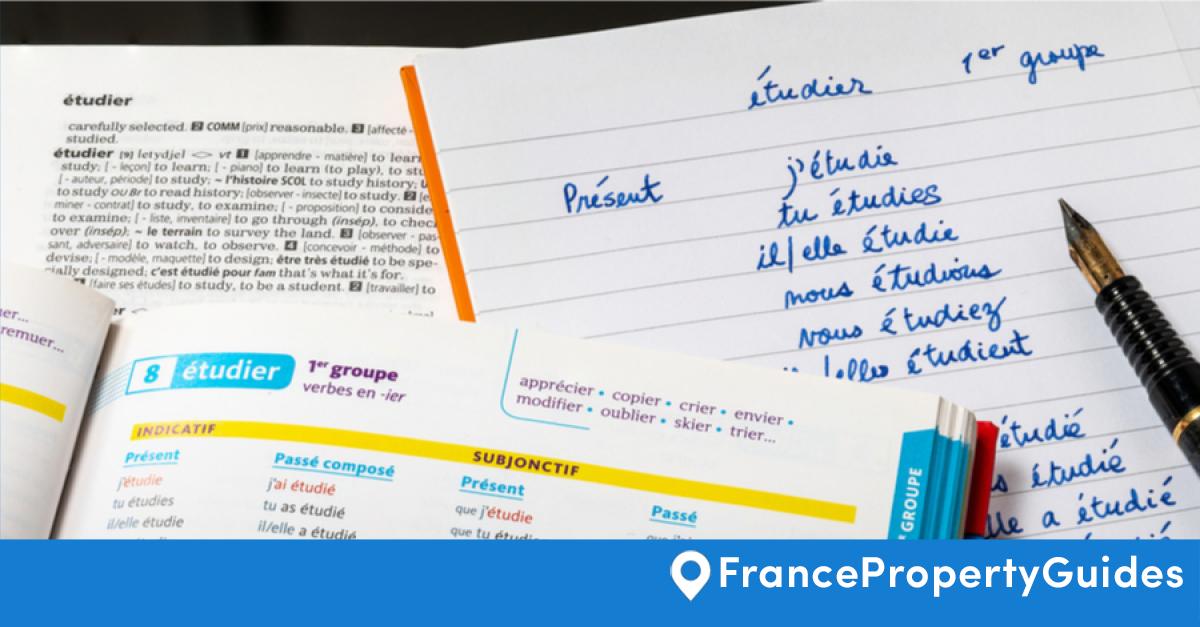 étudier
carefully selected. 2 COMM [prix] reasonable. 3 [affecté -
studied.
étudier [9] [etydje] vt 1 [apprendre - matière] to learn
study; [- leçon] to learn; [- piano] to learn (to play), to stu
[- auteur, période] to study; ~ l'histoire SCOL to study history;
to study OU Br to read history; [observer - insecte] to study. 2
miner - contrat] to study, to examine; [- proposition] to conside
to examine; [- liste, inventaire] to go through (insép), to chec
over (insép); ~ le terrain to survey the land. 3 [observer - pas-
sant, adversaire] to watch, to observe. 4 [concevoir - méthode] to
devise; [- modèle, maquette] to design; être très étudié to be spe-
cially designed; c'est étudié pour fam that's what it's for.
[faire ses études] to study, to be a student. 2 [travailler] to
étudier 1er groupe
Présent
j'étudie
tu étudies
il/elle étudie
nous étudions
vous étudiez
elles étudient
étudié
s étudié
lle a étudié
er...
remuer...
8 étudier
1er groupe
verbes en -ier
apprécier • copier • crier • envier •
modifier • oublier • skier • trier...
INDICATIF
SUBJONCTIF
Présent
j'étudie
tu étudies
il/elle étudie
Passé composé
j'ai étudié
tu as étudié
il/elle a étudié
Présent
que j'étudie
que tu étudies
Passé
GROUPE
FrancePropertyGuides